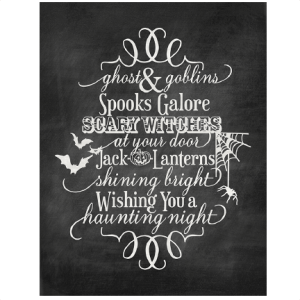 ghost & goblins
Spooks Galore
SCARY WITCHES
at your door
Jack Lanterns
shining bright
Wishing You a
haunting night